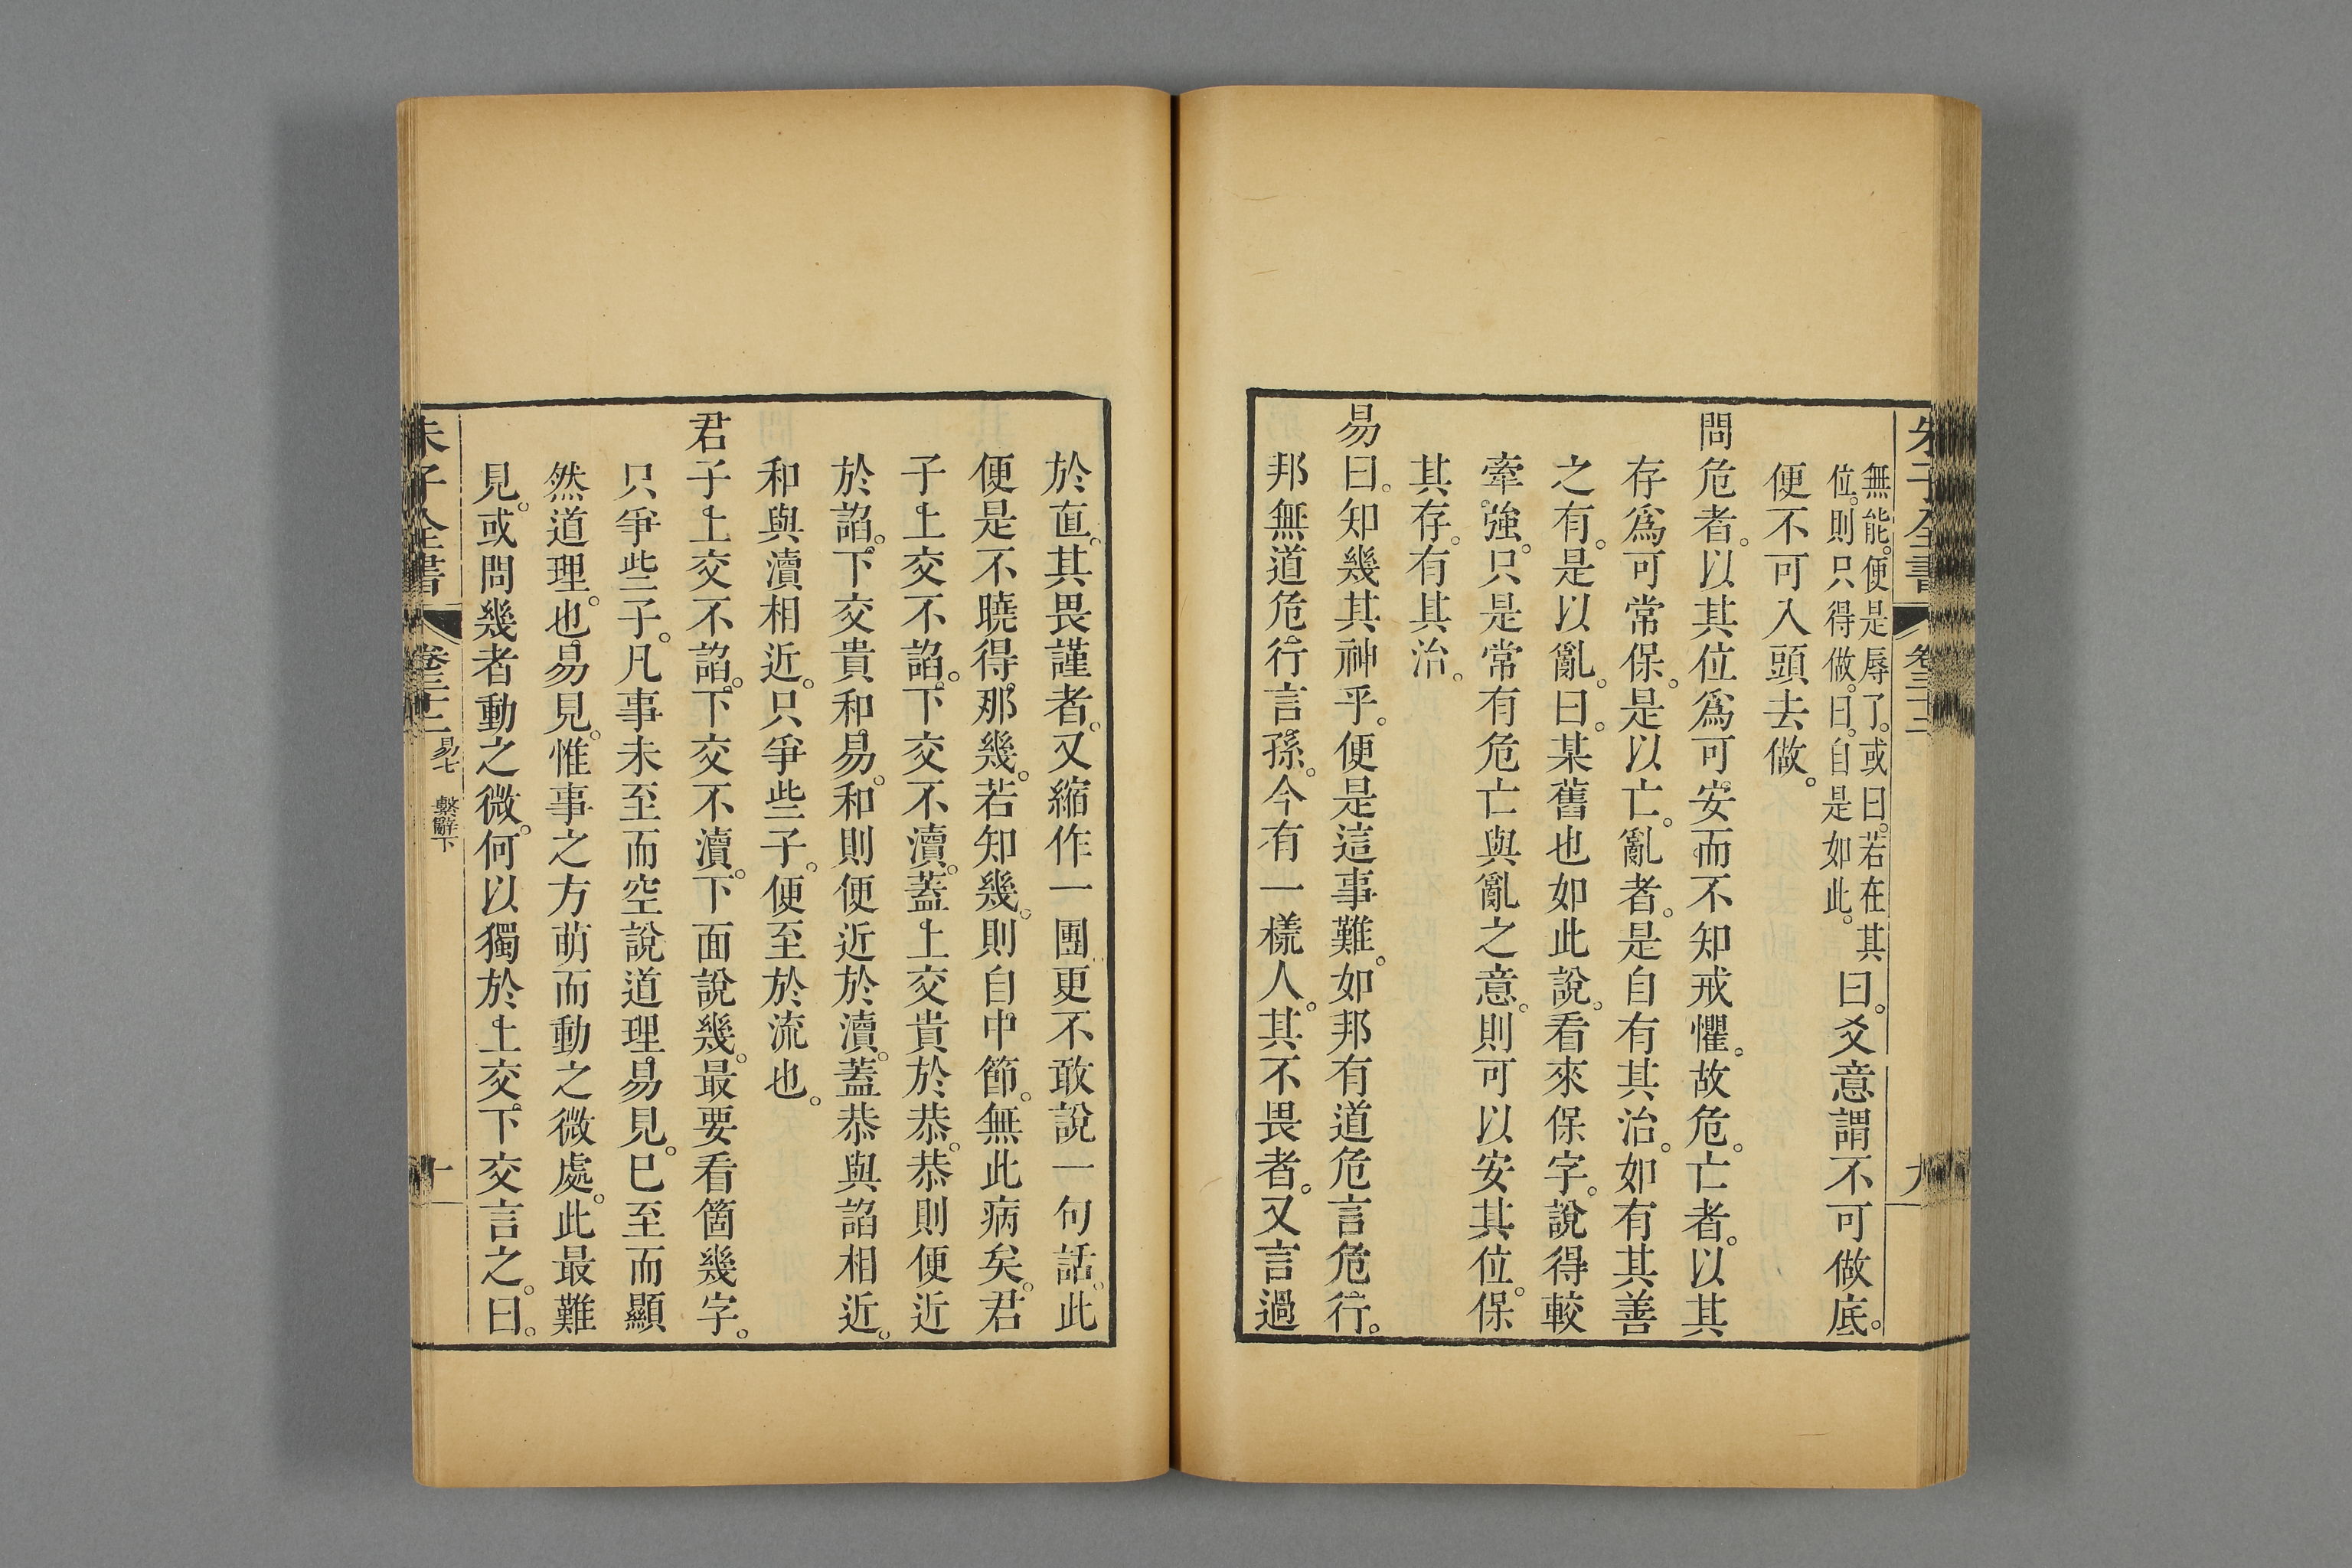 朱子全書
卷三十二
九
無能。便是辱了。或曰。若在其
位。則只得做。曰。自是如此。
曰。爻意謂不可做底。
便不可入頭去做。
問危者。以其位爲可安而不知戒懼。故危。亡者。以其
存爲可常保。是以亡。亂者。是自有其治。如有其善
之有。是以亂。曰。某舊也如此說。看來保字。說得較
牽強。只是常有危亡與亂之意。則可以安其位。保
其存。有其治。
易曰。知幾其神乎。便是這事難。如邦有道危言危行。
邦無道危行言孫。今有一樣人。其不畏者。又言過
於直。其畏謹者。又縮作一團。更不敢說一句話。此
便是不曉得那幾。若知幾。則自中節。無此病矣。君
子上交不諂。下交不瀆。蓋上交貴於恭。恭則便近
於諂。下交貴和易。和則便近於瀆。蓋恭與諂相近。
和與瀆相近。只爭些子。便至於流也。
君子上交不諂。下交不瀆。下面說幾。最要看箇幾字。
只爭些子。凡事未至而空說道理易見。已至而顯
然道理也易見。惟事之方萌而動之微處。此最難
見。或問幾者動之微。何以獨於上交下交言之。曰。
朱子全書
卷三十二
易七
繫辭下
十